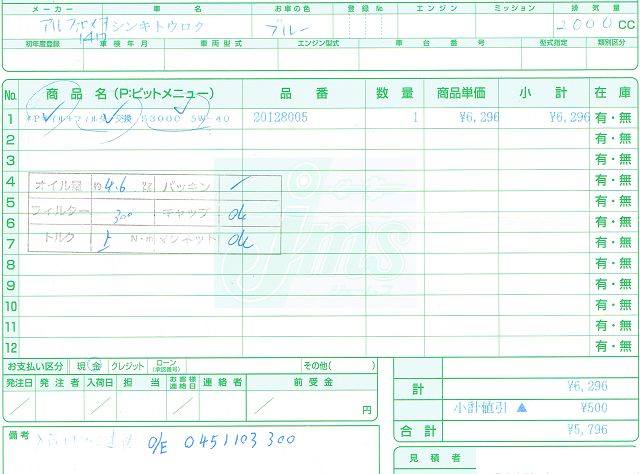 メーカー 車名 お車の色 登録No エンジン ミッション 排気量
アルファロメオ シンキトウロク ブルー 2000 CC
147
初年度登録 車検年月 車両型式 エンジン型式 車台番号 型式指定 類別区分
No. 商品名(P:ピットメニュー) 品番 数量 商品単価 小計 在庫
1 *Pオイル+フィルター交換 S3000 5W-40 20128005 1 ¥6,296 ¥6,296 有・無
2 有・無
3 有・無
4 オイル量 約4.6 パッキン 有・無
5 フィルター 300 キャップ ok 有・無
6 有・無
7 トルク N・m マグネット ok 有・無
8 有・無
9 有・無
10 有・無
11 有・無
12 有・無
jms
お支払い区分 現金 クレジット ローン(承認番号) その他( )
発注日 発注者 入荷日 担当 お客様連絡日 連絡者 前受金
円
計 ¥6,296
小計値引 ▲ ¥500
合計 ¥5,796
備考 O/E 0451103 300
見積者